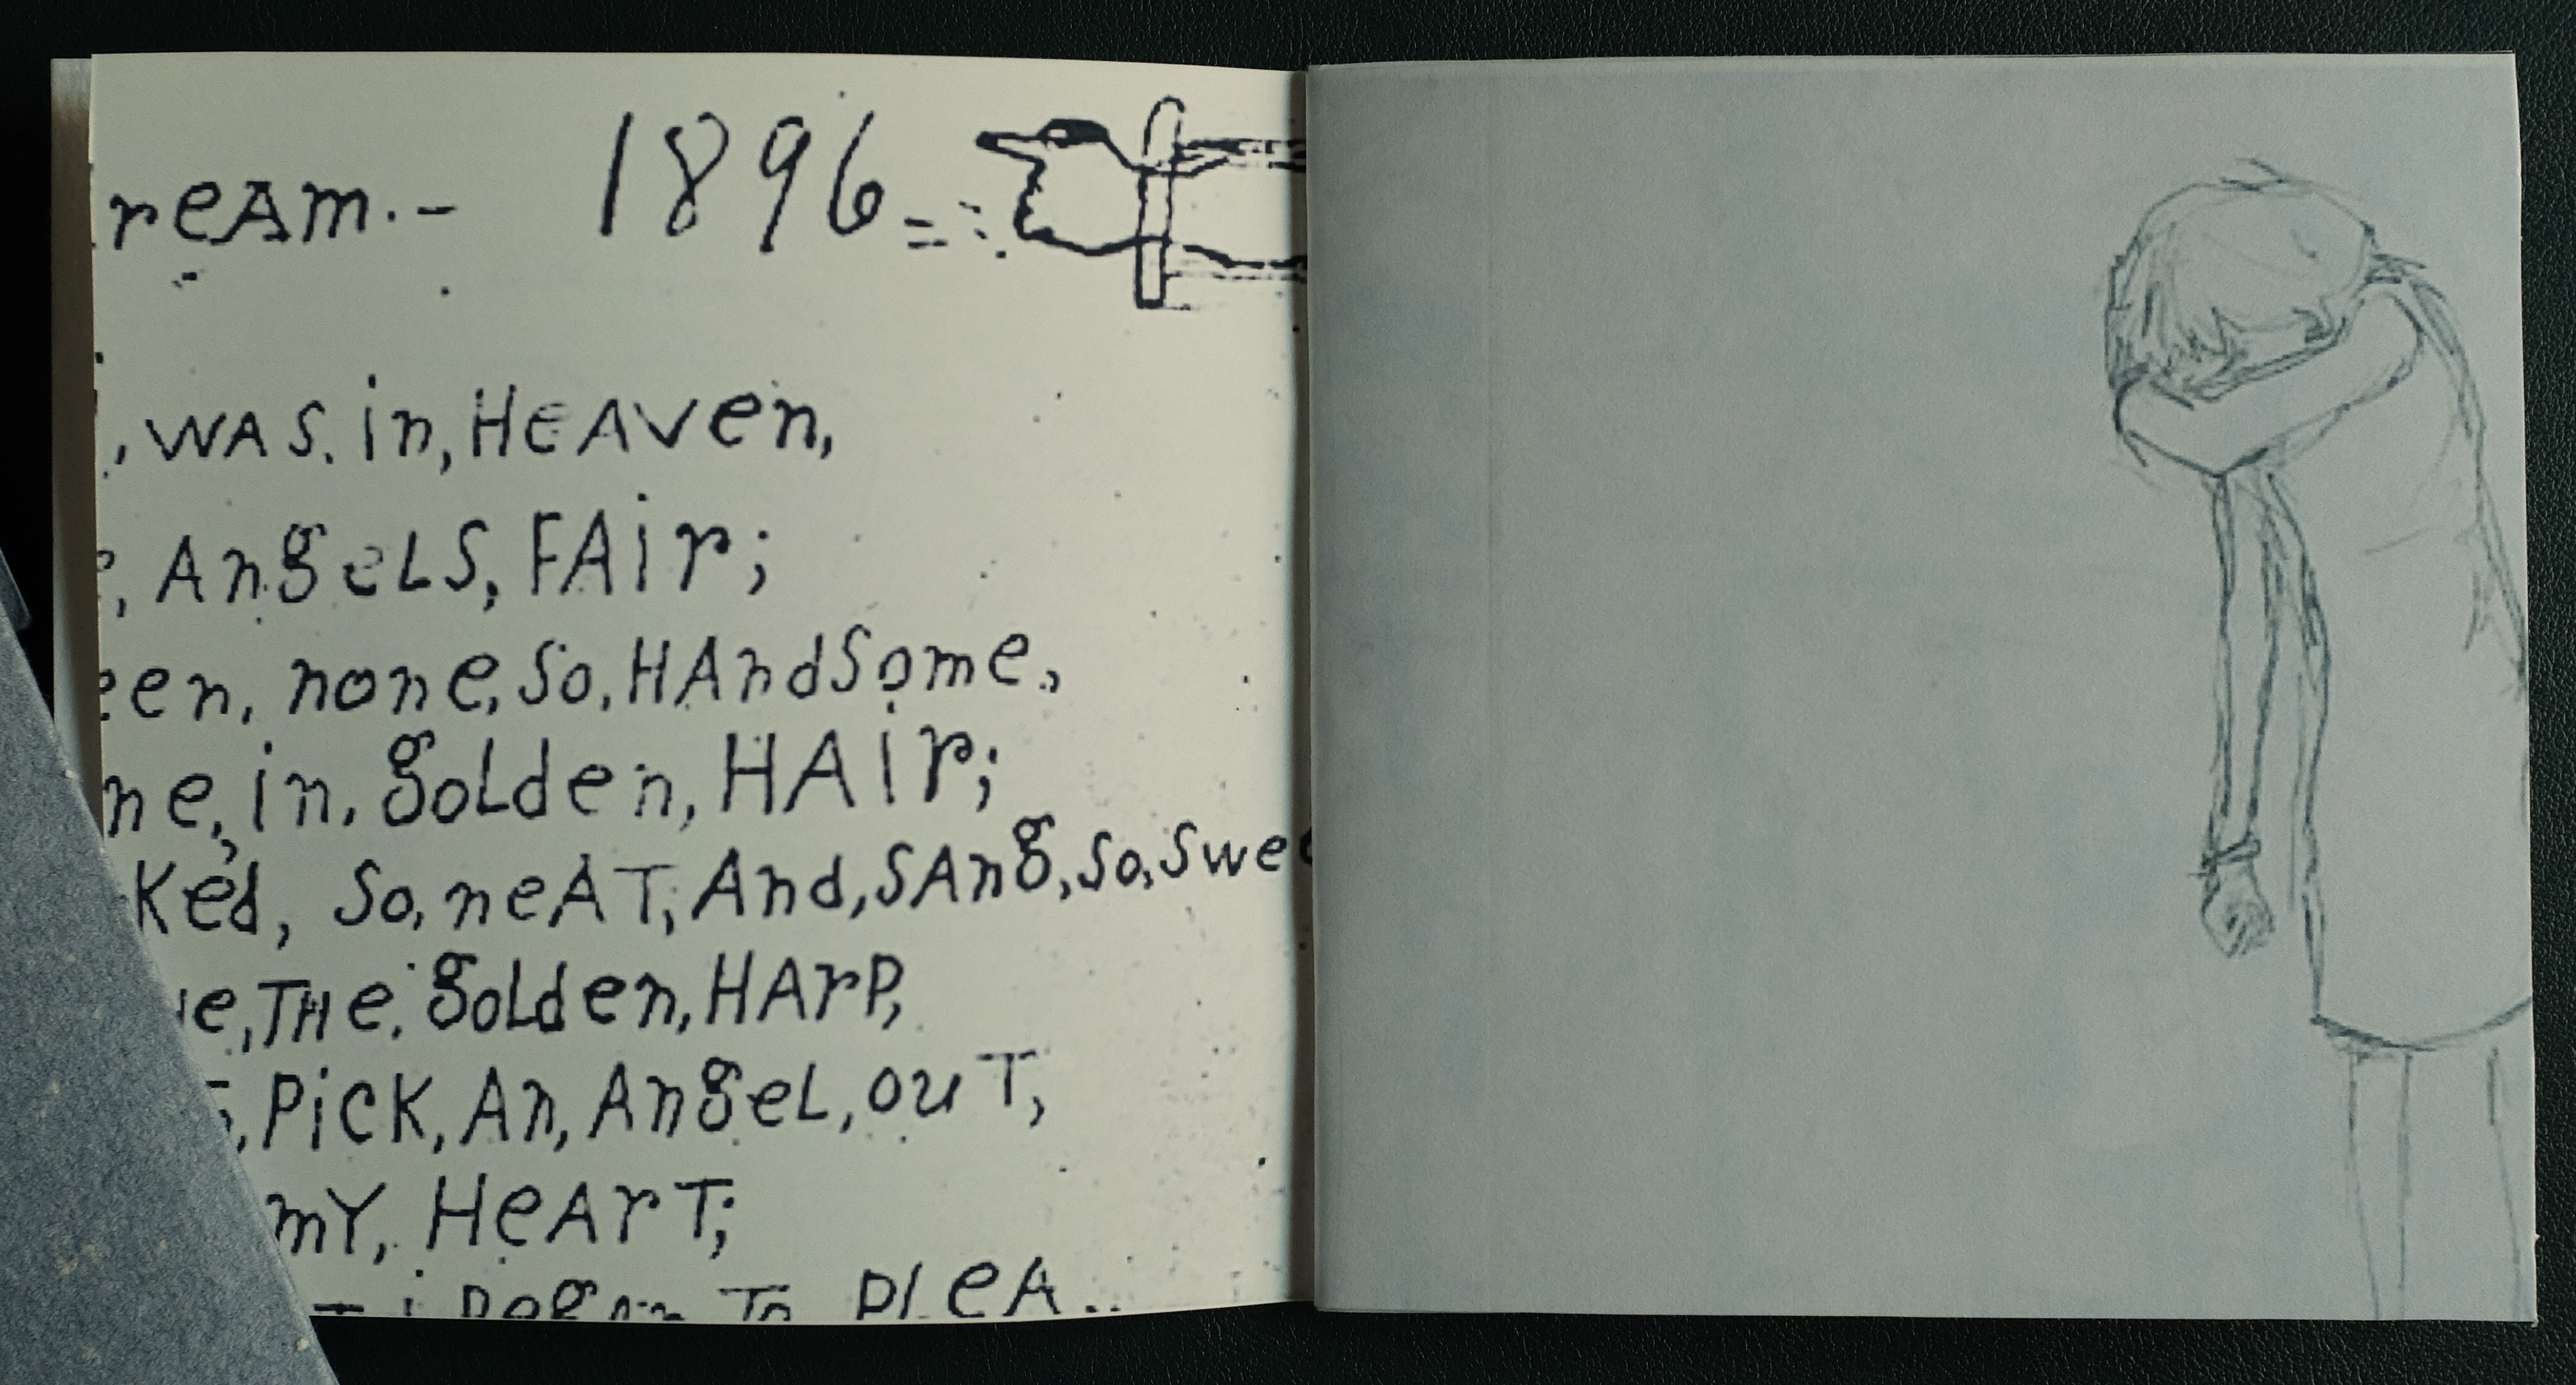 reAm.- 1896=
, WAS. in, HeAven,
, AngeLS, FAir;
een, none, So, HAndSome,
ne, in, goLden, HAir;
Ked, So, neAT, And, SAng, So, Swee
ve, THe, goLden, HArP,
, PiCK, An, AngeL, ouT,
mY, HeArT;
i Began To PLeA